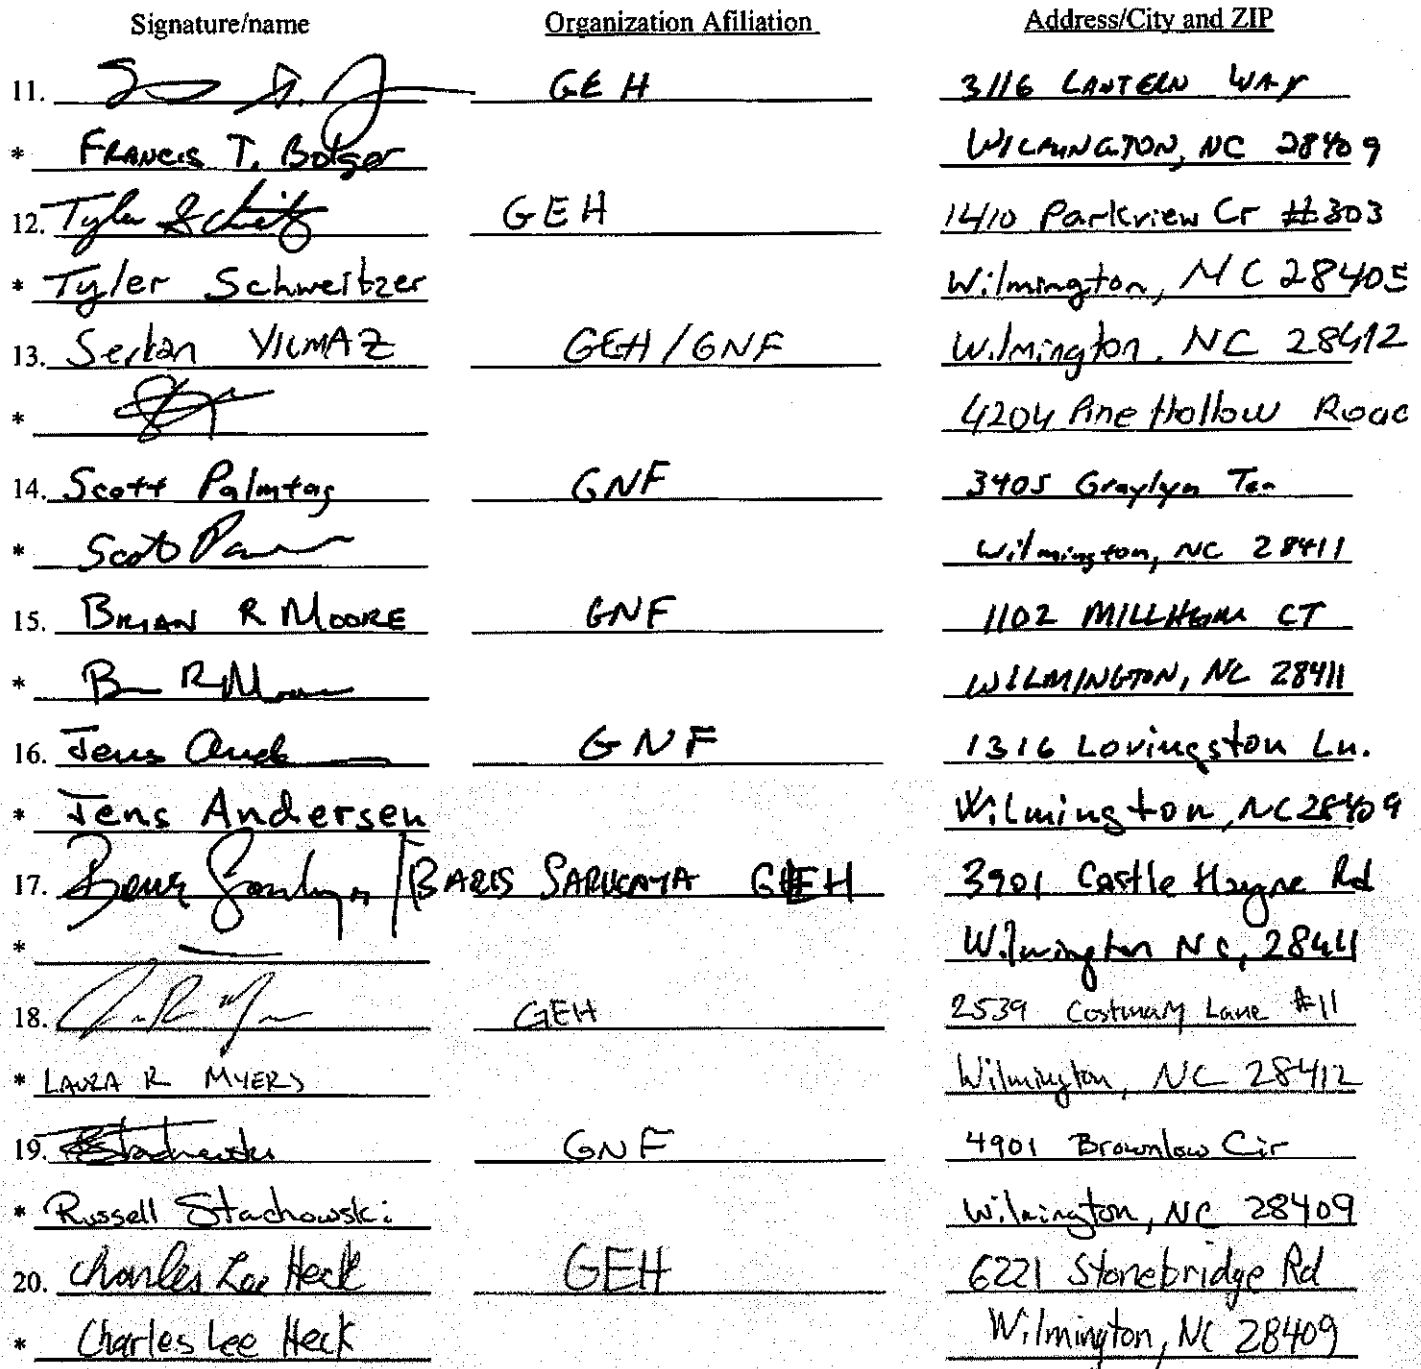 Signature/name Organization Afiliation Address/City and ZIP
11. GEH 3116 LANTERN WAY
* FRANCIS T. Bolger WILMINGTON, NC 28409
12. Tyler GEH 1410 Parkview Cr #303
* Tyler Schweitzer Wilmington, NC 28405
13. Serkan YILMAZ GEH/GNF Wilmington, NC 28412
* 4204 Pine Hollow Road
14. Scott Palmtag GNF 3405 Graylyn Ter
* Scott Wilmington, NC 28411
15. BRIAN R MOORE GNF 1102 CT
* R WILMINGTON, NC 28411
16. Jens GNF 1316 Lovingston Ln.
* Jens Andersen Wilmington, NC 28409
17. /BARIS SARIKAYA GEH 3901 Castle Hayne Rd
* Wilmington NC, 28411
18. GEH 2539 Costmary Lane #11
* LAURA R MYERS Wilmington, NC 28412
19. Stachowski GNF 4901 Brownlow Cir
* Russell Stachowski Wilmington, NC 28409
20. Charles Lee Heck GEH 6221 Stonebridge Rd
* Charles Lee Heck Wilmington, NC 28409